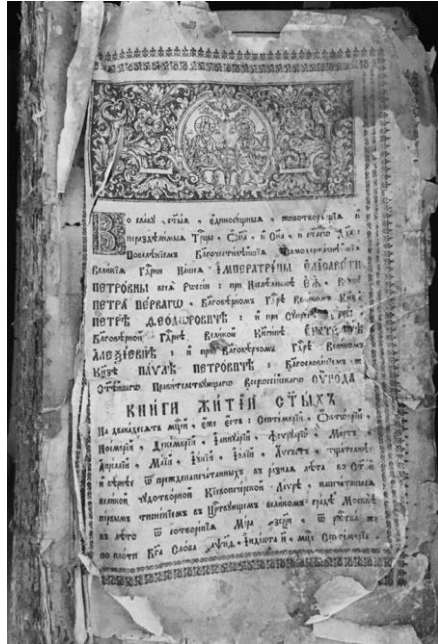 Во славу , ст҃ыя , єдиносущныя , животворѧщїѧ и
нераздѣлимыя Трⷪ҇цы , Оц҃а , и Сн҃а , и ст҃агѡ Дх҃а :
Повелѣнїемъ Благочестивѣйшїѧ Самодержавнѣйшїѧ
Великїѧ Гдⷭ҇рни Нашеѧ : ІМПЕРАТРІЦЫ ЄЛІСАВЕТИ
ПЕТРОВНЫ всеѧ Рѡссїи : при Наслѣдникѣ Єѧ ,
ПЕТРА ПЕРВАГѠ , Благовѣрномъ Гдⷭ҇рѣ Великомъ Кн҃зѣ
ПЕТРѢ ѲЕОДѠРОВИЧѢ : и при Супрꙋгѣ
Благовѣрной Гдⷭ҇рнѣ Великой Кнѧгинѣ ЄКАТЕРИНѢ
АЛЕѮІЕВНѢ : и при Благовѣрномъ Гдⷭ҇рѣ Великомъ
Кн҃зѣ ПАѴЛѢ ПЕТРОВИЧѢ : Благословенїемъ же
Ст҃ѣйшагѡ Правителствꙋющагѡ Всерѡссїйскагѡ СѴНОДА
КНИГИ ЖИТІЙ СТ҃ЫХЪ
На дванадесѧть мцⷭ҇ей , єже єсть : Септемврїй , Октѡврїй ,
Ноемврїй , Декемврїй , Іаннꙋарїй , Феврꙋарїй , Мартъ ,
Апрїллїй , Маїй , Іꙋнїй , Іꙋлїй , Аѵгꙋстъ , тщателнѣе
и вѣрнѣе ѿ прежденапечатанныхъ въ разнаѧ лѣта во Ст҃ой
великой чꙋдотворной Кїевопечерской Лаѵрѣ , напечатасѧ
первымъ тисненїемъ въ Црⷭ҇твꙋющемъ великомъ градѣ Москвѣ
въ лѣто ѿ сотворенїѧ Мїра , ѿ ржⷭ҇тва же
по плоти Бг҃а Слова , їндїкта , мцⷭ҇а Септемврїа